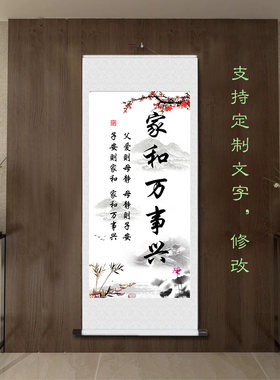 支持定制文字，修改
家和万事兴
父爱则母静　母静则子安
子安则家和　家和万事兴